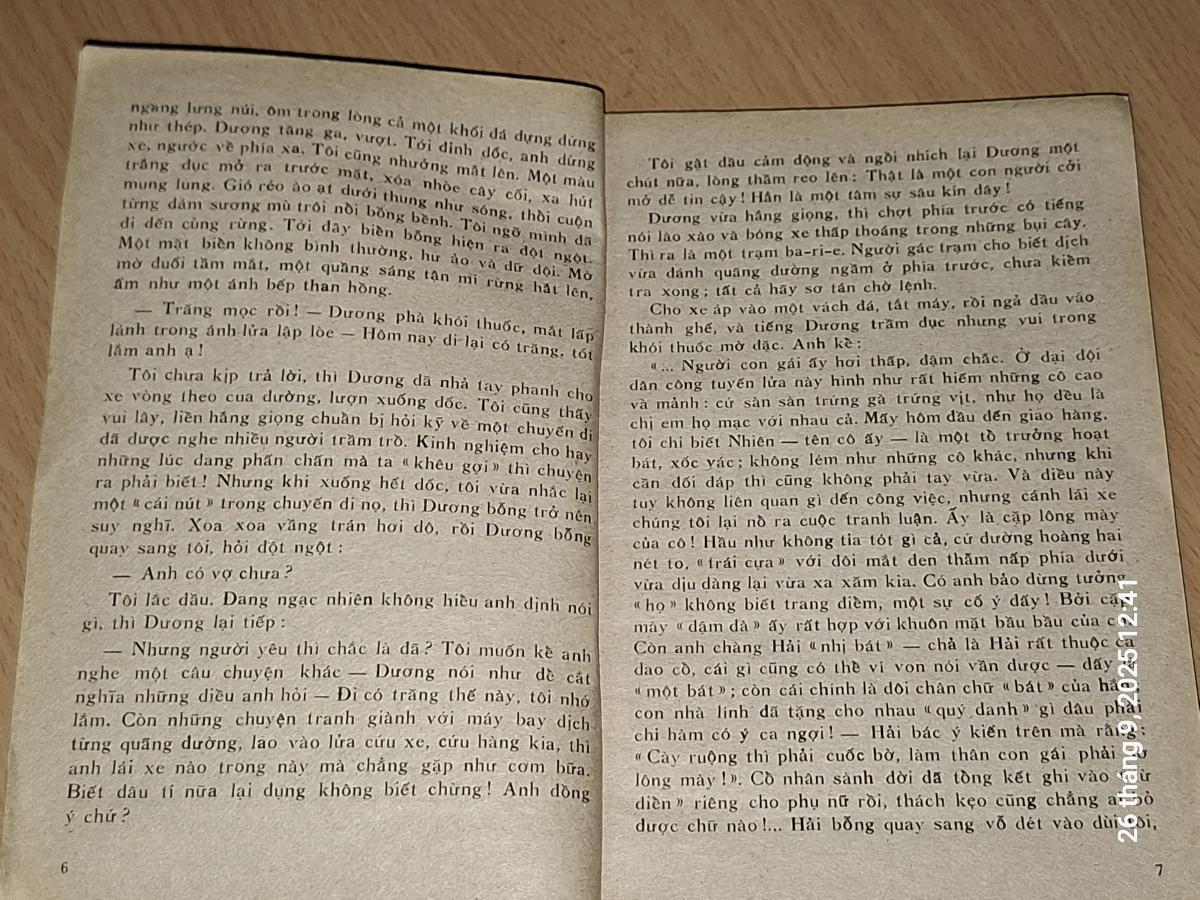 ngang lưng núi, ôm trong lòng cả một khối đá dựng đứng
như thép. Dương tăng ga, vượt. Tới đỉnh dốc, anh dừng
xe, ngước về phía xa. Tôi cũng nhướng mắt lên. Một màu
trắng đục mở ra trước mặt, xóa nhòe cây cối, xa hút
mung lung. Gió réo ào ạt dưới thung như sóng, thổi cuộn
từng đám sương mù trôi nổi bồng bềnh. Tôi ngỡ mình đã
đi đến cùng rừng. Tới đây biển bỗng hiện ra đột ngột.
Một mặt biển không bình thường, hư ảo và dữ dội. Mờ
mờ đuối tầm mắt, một quầng sáng tận mí rừng hắt lên,
ấm như một ánh bếp than hồng.
— Trăng mọc rồi! — Dương phà khói thuốc, mắt lấp
lánh trong ánh lửa lập lòe — Hôm nay đi lại có trăng, tốt
lắm anh ạ!
Tôi chưa kịp trả lời, thì Dương đã nhả tay phanh cho
xe vòng theo cua đường, lượn xuống dốc. Tôi cũng thấy
vui lây, liền hắng giọng chuẩn bị hỏi kỹ về một chuyến đi
đã được nghe nhiều người trầm trồ. Kinh nghiệm cho hay
những lúc đang phấn chấn mà ta « khêu gợi » thì chuyện
ra phải biết! Nhưng khi xuống hết dốc, tôi vừa nhắc lại
một « cái nút » trong chuyến đi nọ, thì Dương bỗng trở nên
suy nghĩ. Xoa xoa vầng trán hơi dô, rồi Dương bỗng
quay sang tôi, hỏi đột ngột:
— Anh có vợ chưa?
Tôi lắc đầu. Đang ngạc nhiên không hiểu anh định nói
gì, thì Dương lại tiếp:
— Nhưng người yêu thì chắc là đã? Tôi muốn kể anh
nghe một câu chuyện khác — Dương nói như để cắt
nghĩa những điều anh hỏi — Đi có trăng thế này, tôi nhớ
lắm. Còn những chuyện tranh giành với máy bay địch
từng quãng đường, lao vào lửa cứu xe, cứu hàng kia, thì
anh lái xe nào trong này mà chẳng gặp như cơm bữa.
Biết đâu tí nữa lại đụng không biết chừng! Anh đồng
ý chứ?
6
Tôi gật đầu cảm động và ngồi nhích lại Dương một
chút nữa, lòng thầm reo lên: Thật là một con người cởi
mở dễ tin cậy! Hẳn là một tâm sự sâu kín đây!
Dương vừa hắng giọng, thì chợt phía trước có tiếng
nói lào xào và bóng xe thấp thoáng trong những bụi cây.
Thì ra là một trạm ba-ri-e. Người gác trạm cho biết địch
vừa đánh quãng đường ngầm ở phía trước, chưa kiểm
tra xong; tất cả hãy sơ tán chờ lệnh.
Cho xe áp vào một vách đá, tắt máy, rồi ngả đầu vào
thành ghế, và tiếng Dương trầm đục nhưng vui trong
khói thuốc mờ đặc. Anh kể:
«... Người con gái ấy hơi thấp, đậm chắc. Ở đại đội
dân công tuyến lửa này hình như rất hiếm những cô cao
và mảnh: cứ sàn sàn trứng gà trứng vịt, như họ đều là
chị em họ mạc với nhau cả. Mấy hôm đầu đến giao hàng,
tôi chỉ biết Nhiên — tên cô ấy — là một tổ trưởng hoạt
bát, xốc vác; không lém như những cô khác, nhưng khi
cần đối đáp thì cũng không phải tay vừa. Và điều này
tuy không liên quan gì đến công việc, nhưng cánh lái xe
chúng tôi lại nổ ra cuộc tranh luận. Ấy là cặp lông mày
của cô! Hầu như không tỉa tót gì cả, cứ đường hoàng hai
nét to, « trái cựa » với đôi mắt đen thẫm nấp phía dưới
vừa dịu dàng lại vừa xa xăm kia. Có anh bảo đừng tưởng
« họ » không biết trang điểm, một sự cố ý đấy! Bởi cặp
mày « đậm đà » ấy rất hợp với khuôn mặt bầu bầu của cô.
Còn anh chàng Hải « nhị bát » — chả là Hải rất thuộc ca
dao cổ, cái gì cũng có thể ví von nói vần được — đấy
« một bát »; còn cái chính là đôi chân chữ « bát » của hắn,
con nhà lính đã tặng cho nhau « quý danh » gì đâu phải
chỉ hàm có ý ca ngợi! — Hải bác ý kiến trên mà rằng:
« Cày ruộng thì phải cuốc bờ, làm thân con gái phải
lông mày! ». Cổ nhân sành đời đã tổng kết ghi vào « từ
điển » riêng cho phụ nữ rồi, thách kẹo cũng chẳng ai bỏ
được chữ nào!... Hải bỗng quay sang vỗ đét vào đùi tôi,
7
26 tháng 9, 2025 12:41